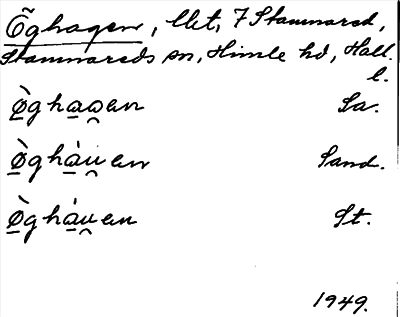 Öghagen, lht, 7 Stamnared,
Stamnareds sn, Himle hd, Hall.
l.
ø̲̀gha̲o̯en Sa.
ø̲̀ghà̲u̯en Sand.
ø̲̀ghà̲u̯en St.
1949.